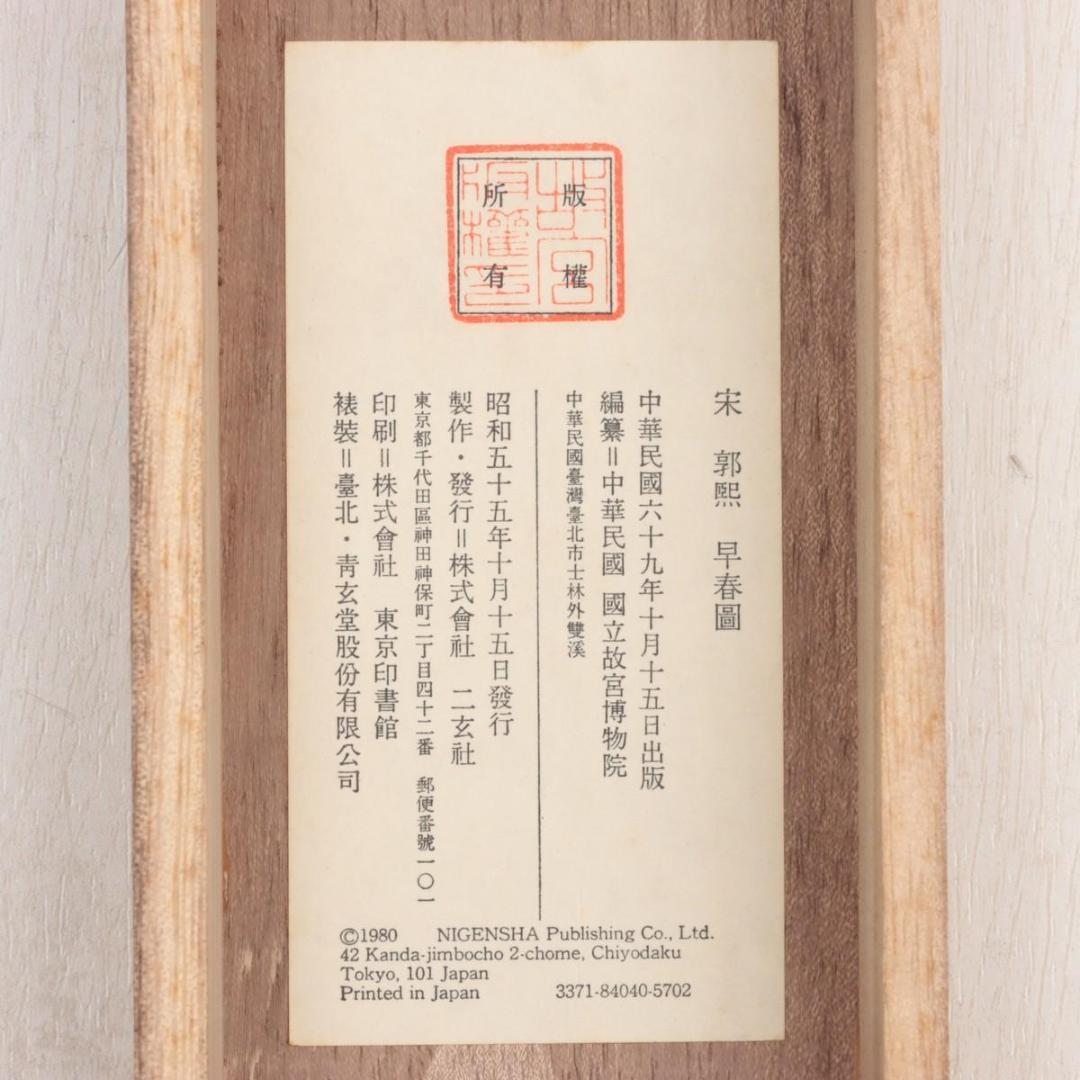 版權
所有
故宮
版權印
宋　郭熙　早春圖
中華民國六十九年十月十五日出版
編纂＝中華民國　國立故宮博物院
中華民國臺灣臺北市士林外雙溪
昭和五十五年十月十五日發行
製作・發行＝株式會社　二玄社
東京都千代田區神田神保町二丁目四十二番　郵便番號一〇一
印刷＝株式會社　東京印書館
裱裝＝臺北・靑玄堂股份有限公司
©1980 NIGENSHA Publishing Co., Ltd.
42 Kanda-jimbocho 2-chome, Chiyodaku
Tokyo, 101 Japan
Printed in Japan 3371-84040-5702